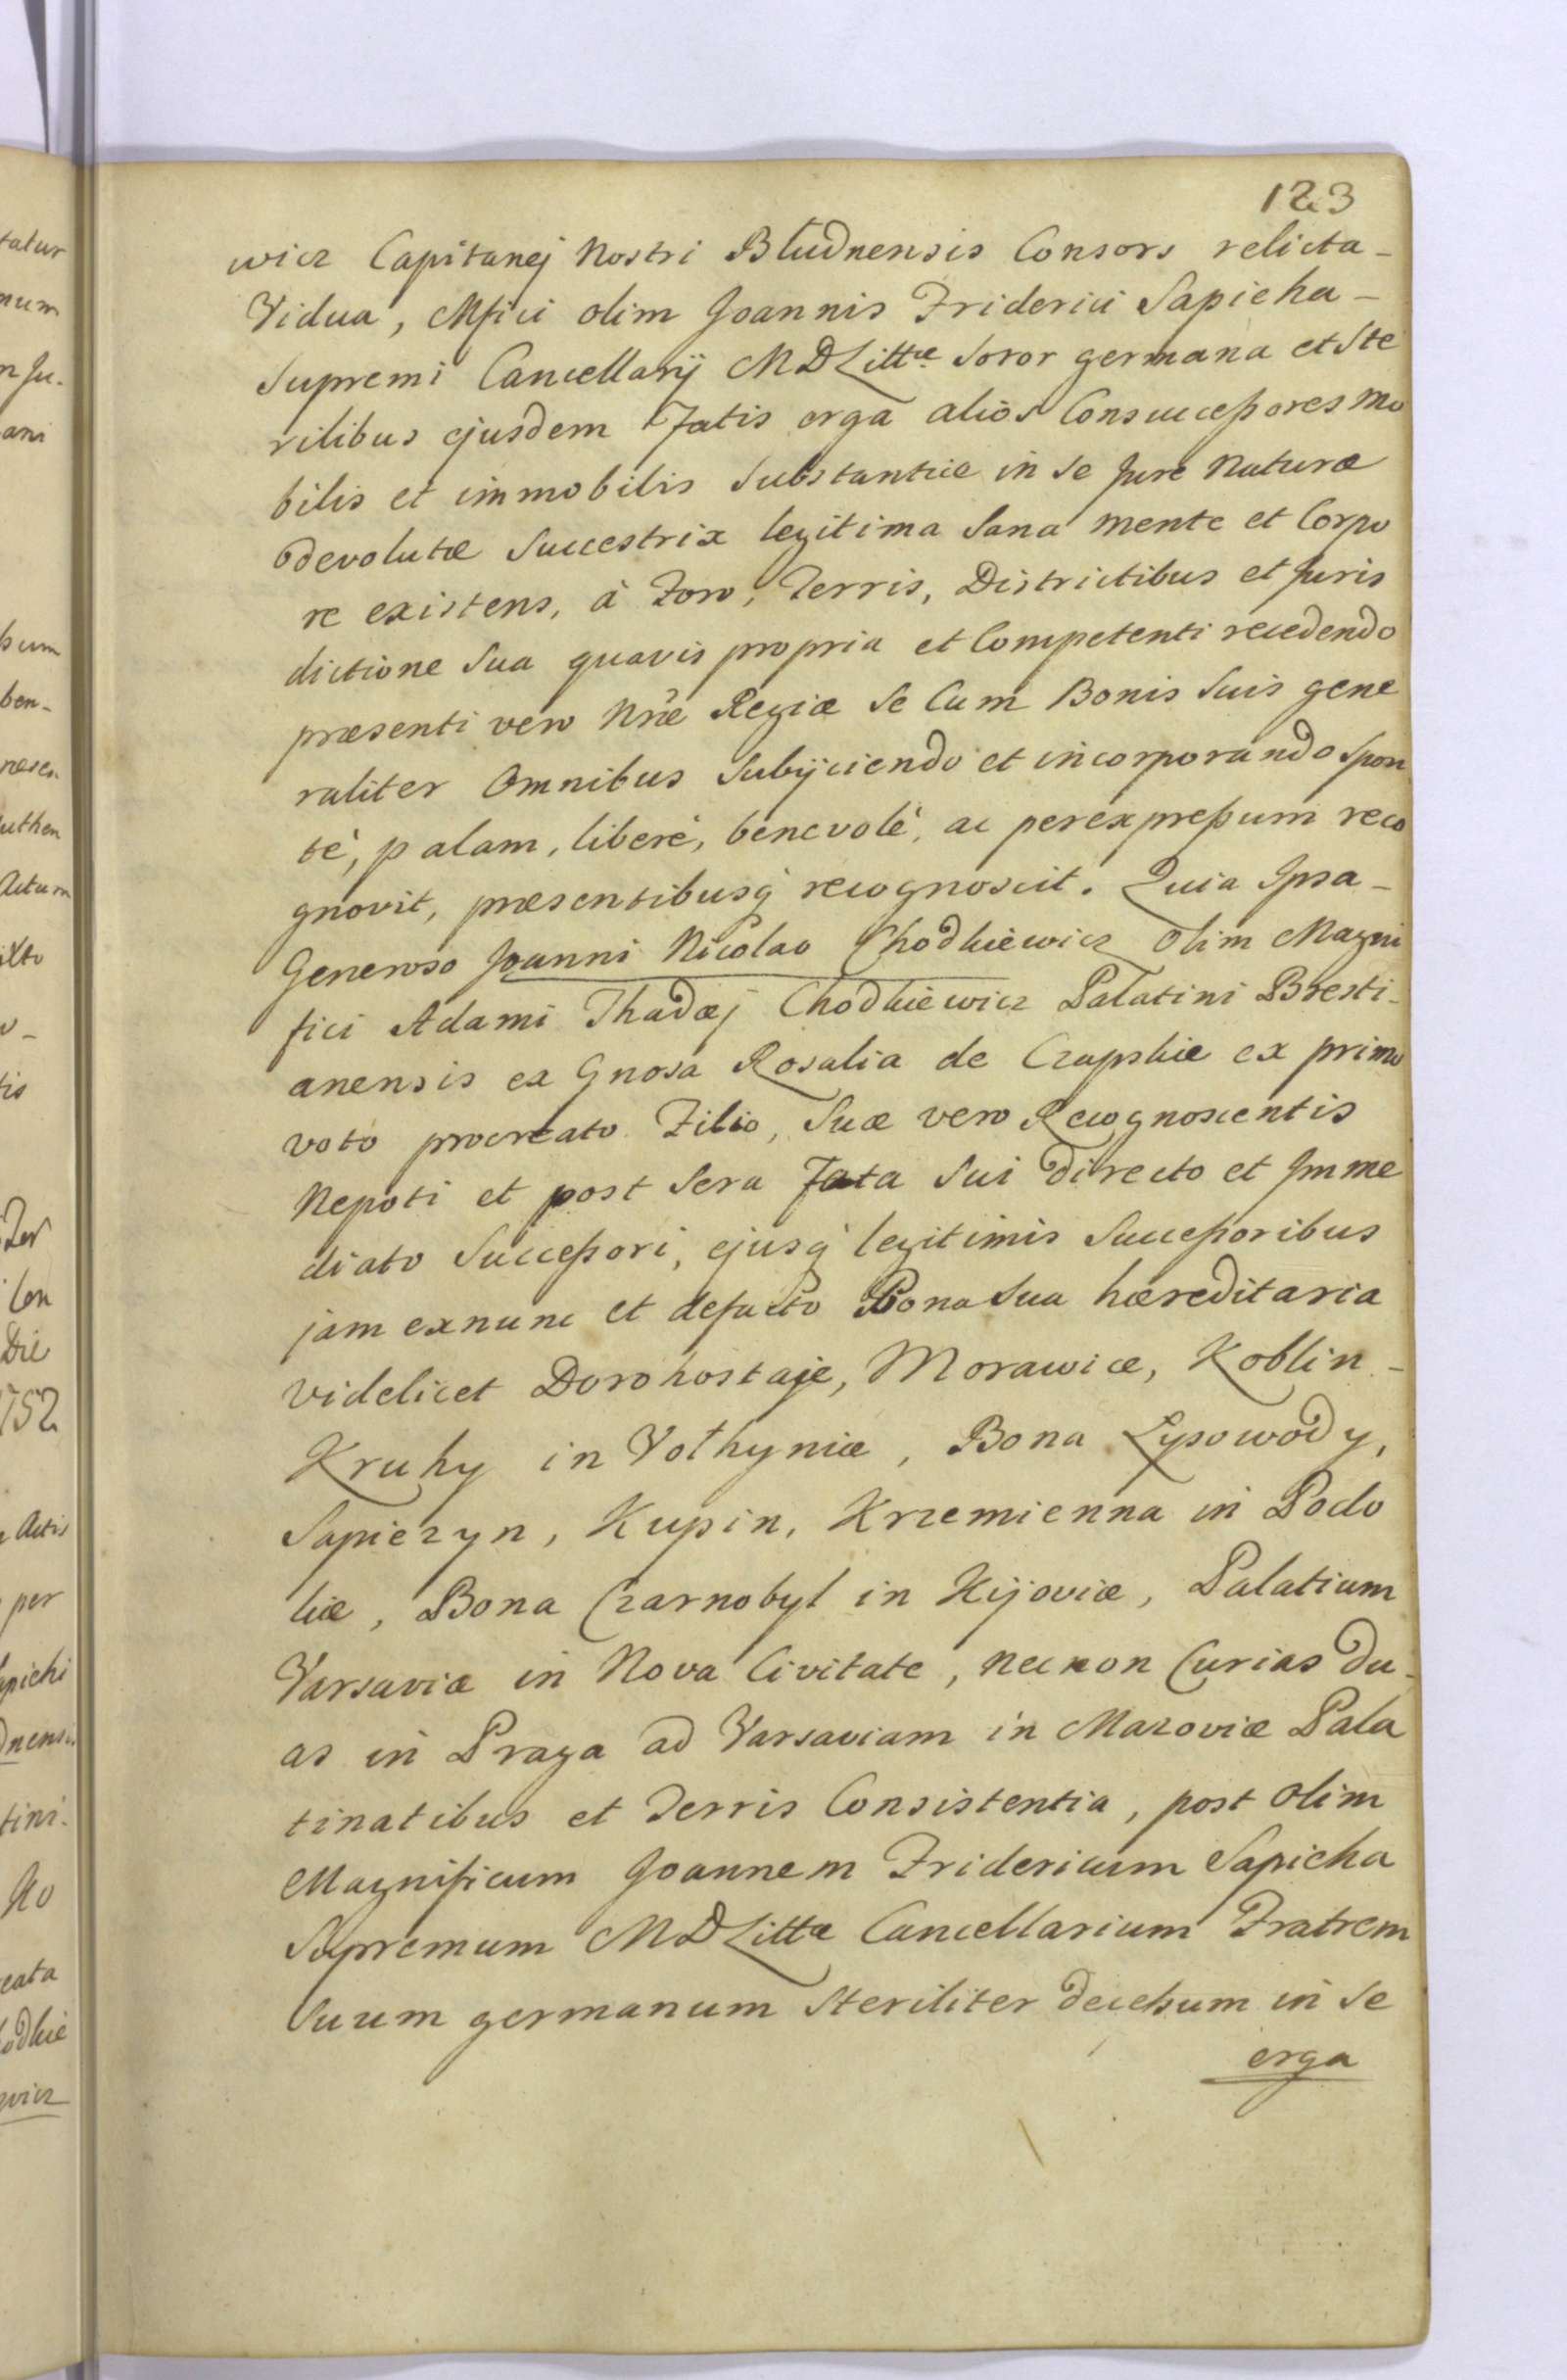 123
wicz Capitanej Nostri Błudnensis Consors relicta-
Vidua, Mfici olim Joannis Friderici Sapieha-
Supremi Cancellarij MDLittæ Soror germana et Ste
rilibus ejusdem Fatis erga alios Consuccessores mo
bilis et immobilis Substantiæ in se Jure Naturæ
devolutæ Succestrix legitima Sana mente et Corpo
re existens, à Foro, Terris, Districtibus et Juris
dictione Sua quavis propria et Competenti recedendo
præsenti vero Nræ Regiæ Se Cum Bonis Suis gene
raliter Omnibus Subijciendo et incorporando Spon
tè, palam, liberè, benevolè, ac perexpressum reco
gnovit, præsentibusq recognoscit. Quia Ipsa-
Generoso Joanni Nicolao Chodkiewicz Olim Magni
fici Adami Thadæj Chodkiewicz Palatini Bresti-
anensis ex Gnosa Rosalia de Czapskie ex primo
voto procreato Filio, Suæ vero Recognoscentis
Nepoti et post Sera Fata Sui directo et Imme
diato Successori, ejusq legitimis Successoribus
jam exnunc et defacto Bona Sua hæreditaria
videlicet Dorohostaje, Morawice, Koblin-
Kruhy in Vołhyniæ, Bona Łysowody,
Sapiezyn, Kupin, Krzemienna in Podo
liæ, Bona Czarnobyl in Kijoviæ, Palatium
Varsaviæ in Nova Civitate, necnon Curias Du-
as in Praga ad Varsaviam in Mazoviæ Pala
tinatibus et Terris Consistentia, post Olim
Magnificum Joannem Fridericum Sapieha
Supremum MDLittæ Cancellarium Fratrem
Suum germanum Steriliter decessum in Se
erga
tatur
num
n Ju-
ani
ssum
ben-
Actum
tis
Con
Die
1752
Actis
per
apiehi
dnensis
tini.
eata
odkie
wicz